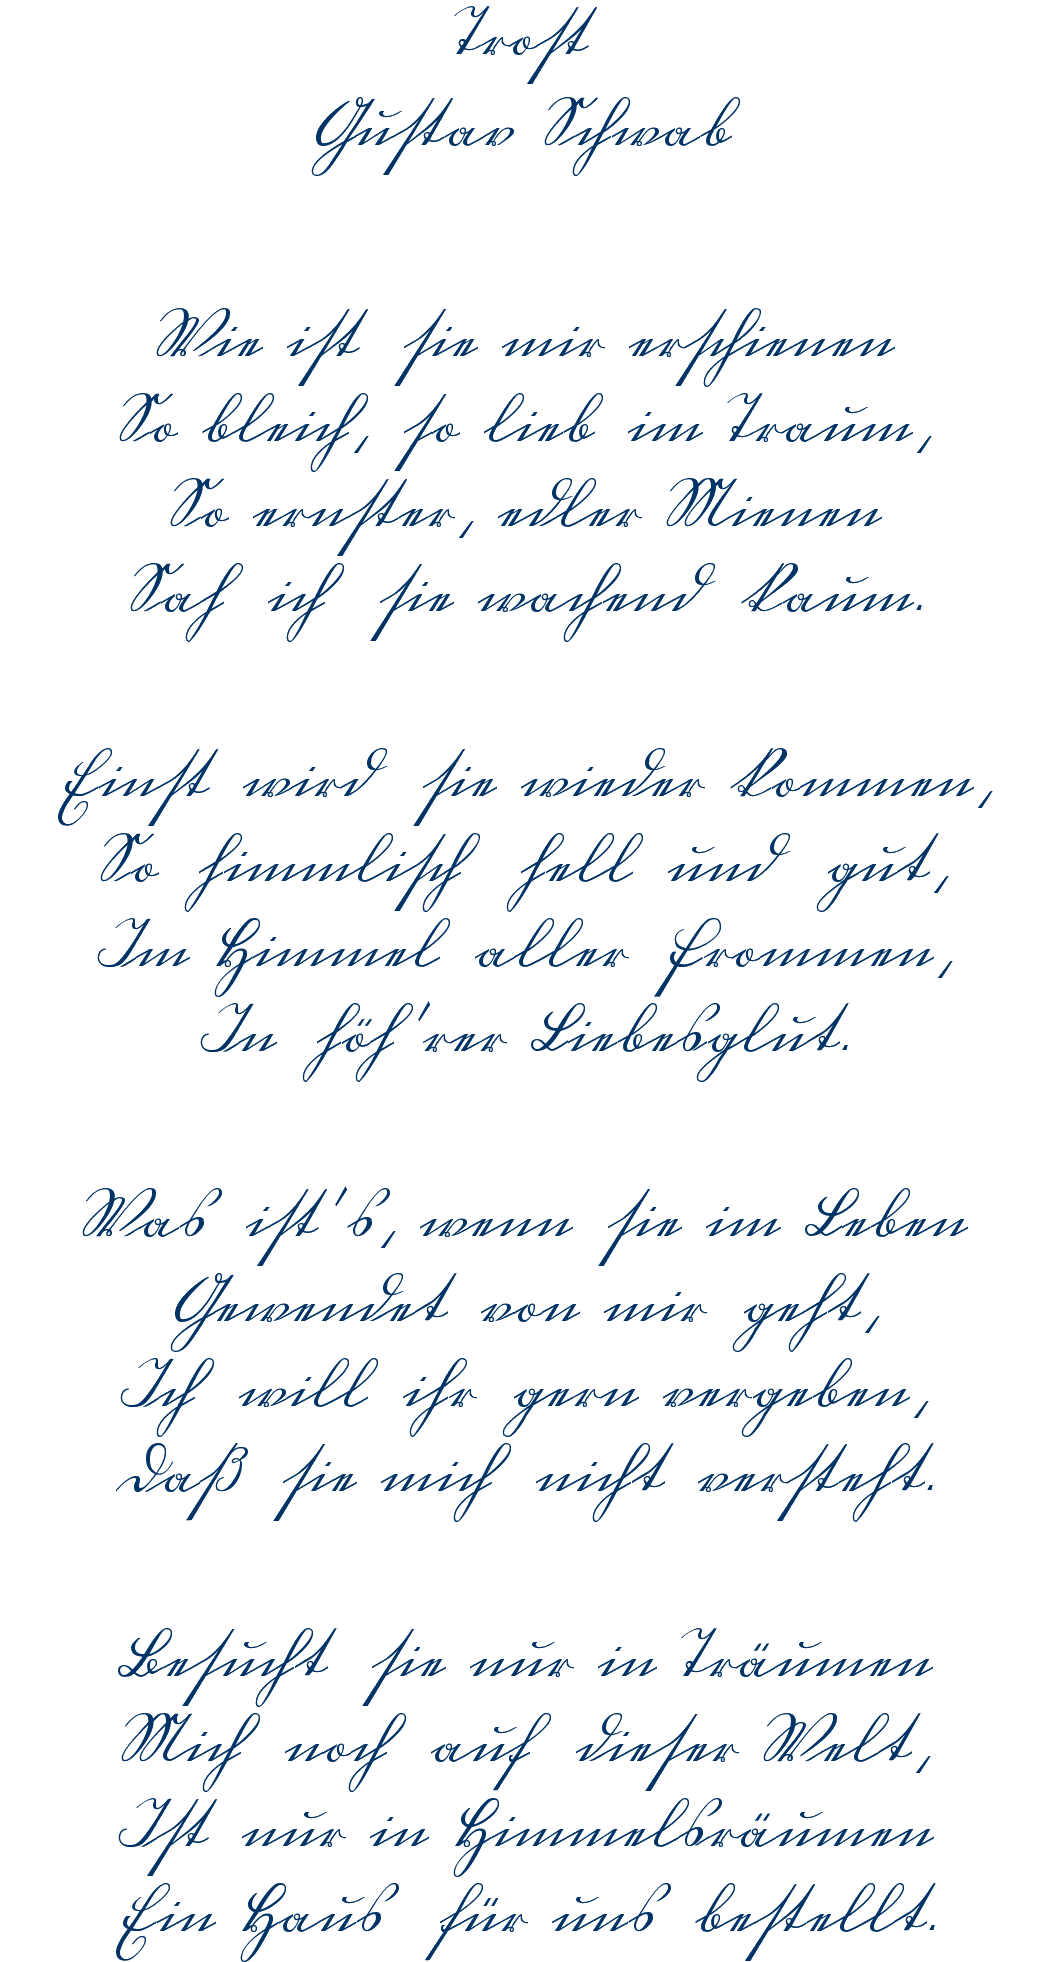 Trost
Gustav Schwab
Wie ist sie mir erschienen
So bleich, so lieb im Traum,
So ernster, edler Mienen
Sah ich sie wachend kaum.
Einst wird sie wieder kommen,
So himmlisch hell und gut,
Im Himmel aller frommen,
In höh'rer Liebesglut.
Was ist's, wenn sie im Leben
Gewendet von mir geht,
Ich will ihr gern vergeben,
Daß sie mich nicht versteht.
Besucht sie nur in Träumen
Mich noch auf dieser Welt,
Ist nur in Himmelsräumen
Ein Haus für uns bestellt.